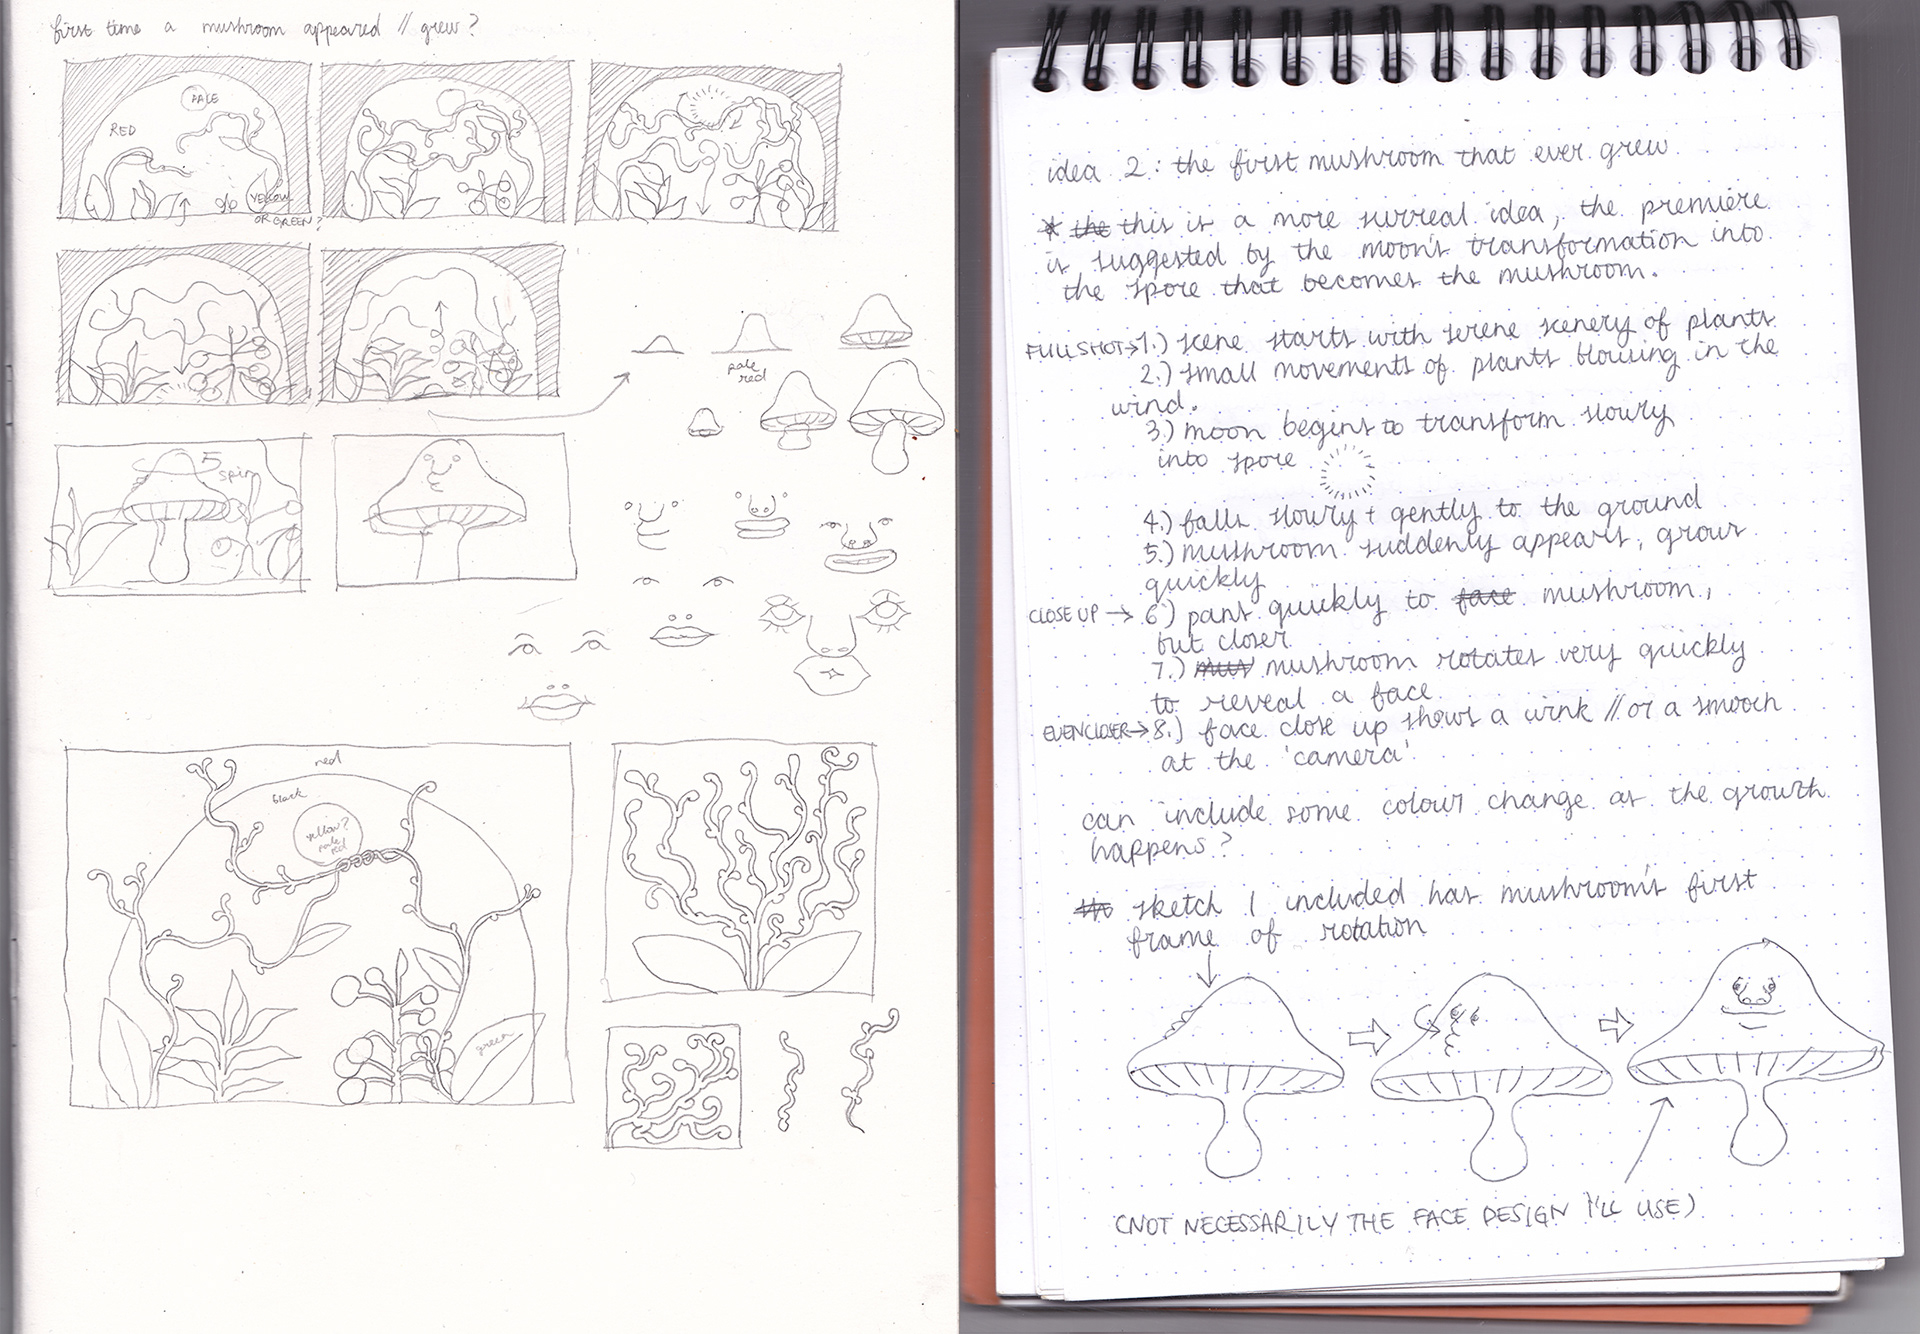 first time a mushroom appeared // grew?
PALE
RED
YELLOW
OR GREEN?
pale
red
spin
red
black
yellow?
pale
red
green
idea 2: the first mushroom that ever grew
* the this is a more surreal idea, the premiere
is suggested by the moon's transformation into
the spore that becomes the mushroom.
FULL SHOT → 1.) scene starts with serene scenery of plants
2.) small movements of plants blowing in the
wind.
3.) moon begins to transform slowly
into spore
4.) falls slowly + gently to the ground
5.) mushroom suddenly appears, grows
quickly
CLOSE UP → 6.) pans quickly to face mushroom,
but closer
7.) mus mushroom rotates very quickly
to reveal a face
EVEN CLOSER → 8.) face close up shows a wink // or a smooch
at the 'camera'
can include some colour change as the growth
happens?
sketch I included has mushroom's first
frame of rotation
(NOT NECESSARILY THE FACE DESIGN I'LL USE)